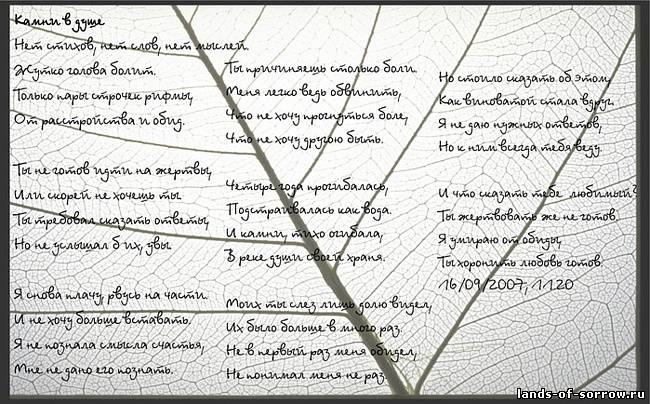 Камни в душе
Нет стихов, нет слов, нет мыслей.
Жутко голова болит.
Только пары строчек рифмы,
От расстройства и обид.
Ты не готов идти на жертвы,
Или скорей не хочешь ты.
Ты требовал сказать ответы,
Но не услышал б их, увы.
Я снова плачу, рвусь на части.
И не хочу больше вставать.
Я не познала смысла счастья,
Мне не дано его познать.
Ты причиняешь столько боли.
Меня легко ведь обвинить,
Что не хочу прогнуться боле,
Что не хочу другою быть.
Четыре года прогибалась,
Подстраивалась как вода.
И камни, тихо огибала,
В реке души своей храня.
Моих ты слез лишь долю видел,
Их было больше в много раз.
Не в первый раз меня обидел,
Не понимал меня не раз.
Но стоило сказать об этом,
Как виноватой стала вдруг.
Я не даю нужных ответов,
Но к ним всегда тебя веду.
И что сказать тебе любимый?
Ты жертвовать же не готов.
Я умираю от обиды,
Ты хоронить любовь готов.
16/09/2007, 11:20
lands-of-sorrow.ru